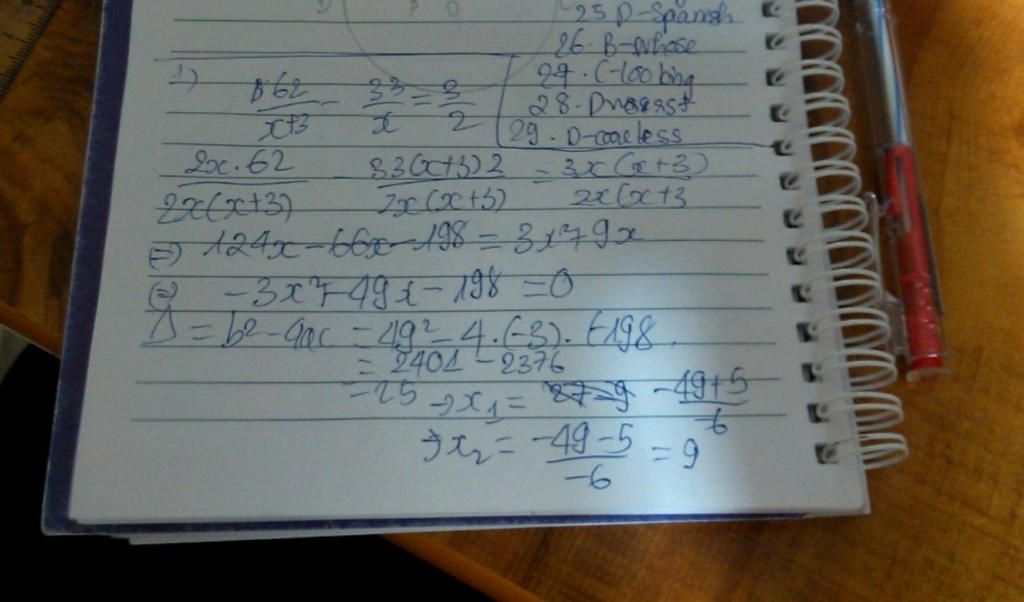 D P O
25 D-Spanish
26. B-whose
27. C-looking
28. D
29. D-careless
1) 62/x+3 - 33/x = 3/2
2x.62/2x(x+3) 33(x+3)2/2x(x+3) = 3x(x+3)/2x(x+3
(=) 124x-66x-198 = 3x²+9x
(=) -3x²+49x-198 =0
Δ = b²-4ac = 49²-4.(-3).(-198.
= 2401 - 2376
=25 → x₁ = -49+5/-6
→ x₂ = -49-5/-6 = 9